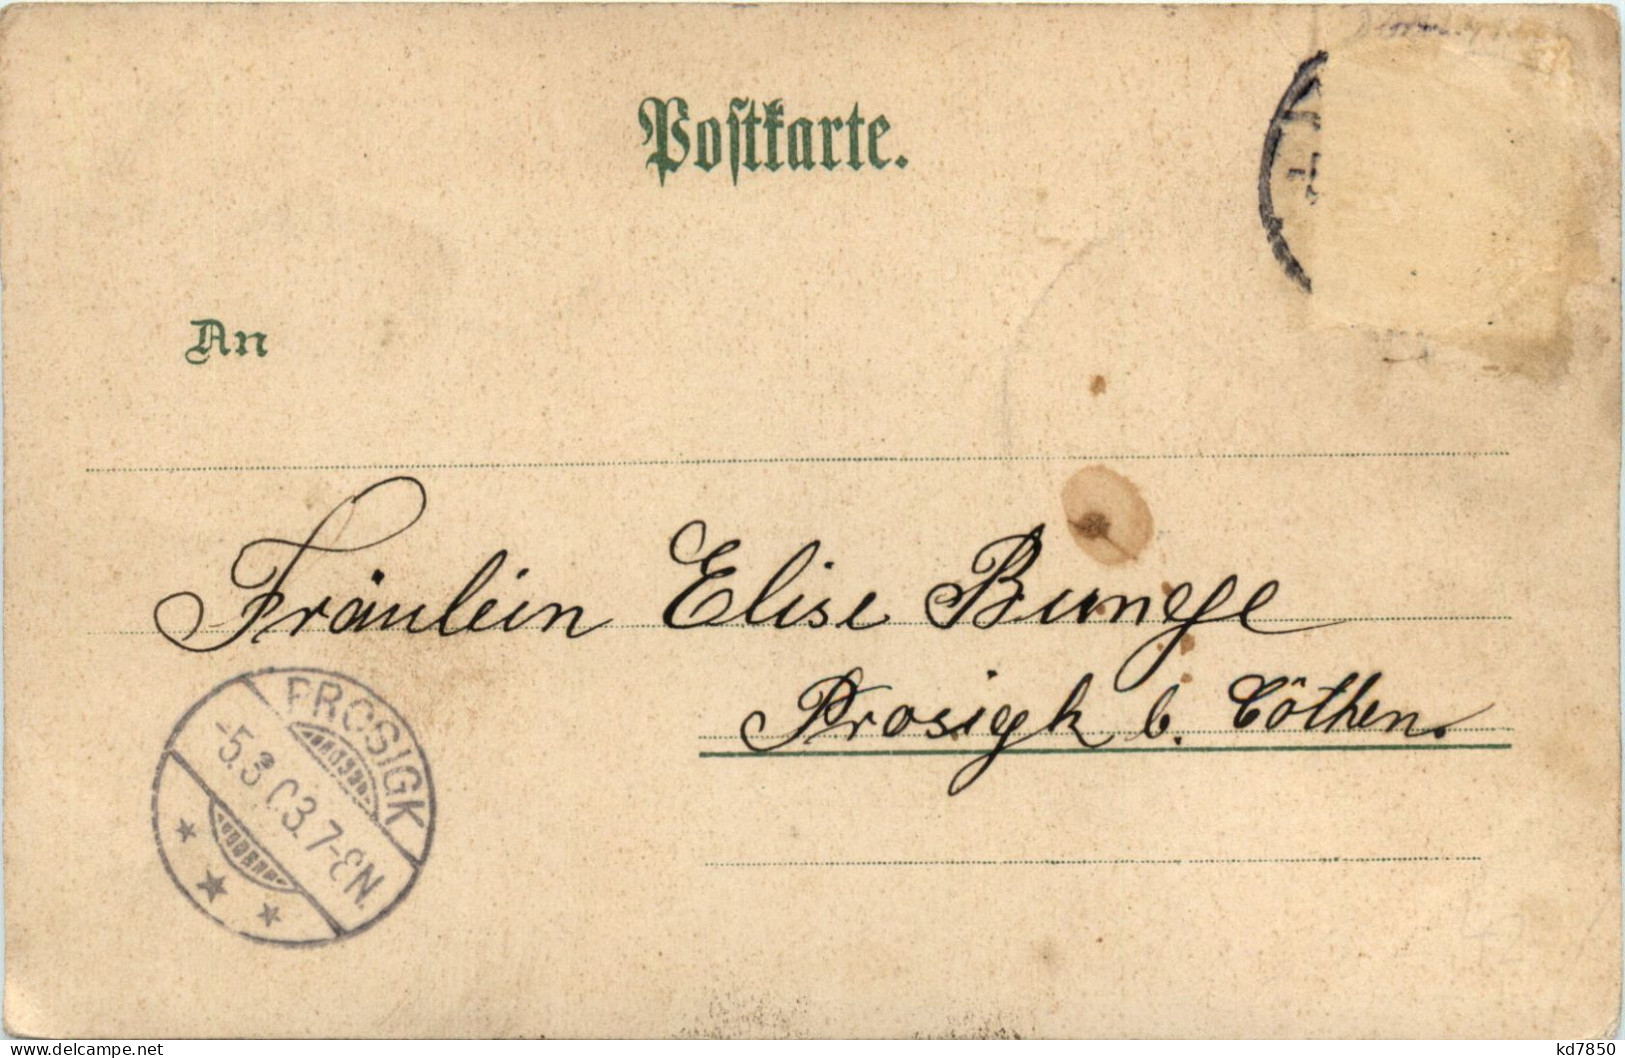 Postkarte.
An
Fräulein Elise Bunge
Prosigk b. Cöthen.
PROSIGK
-5.3.03.7-8N.
delcampe.net
kd7850